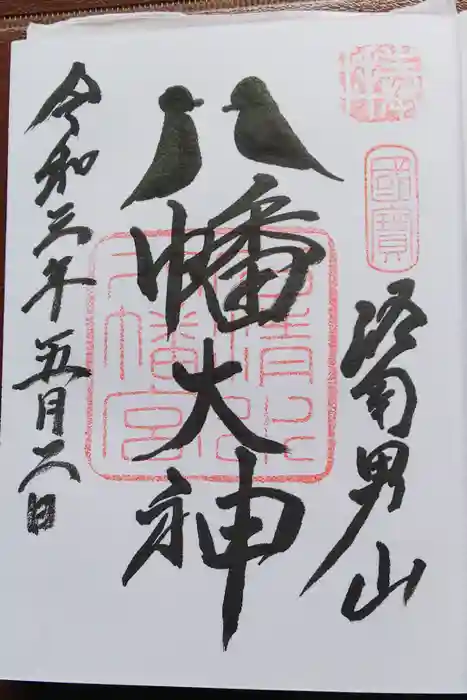 國寶
洛南男山
八幡大神
石清水
八幡宮
令和三年五月二日